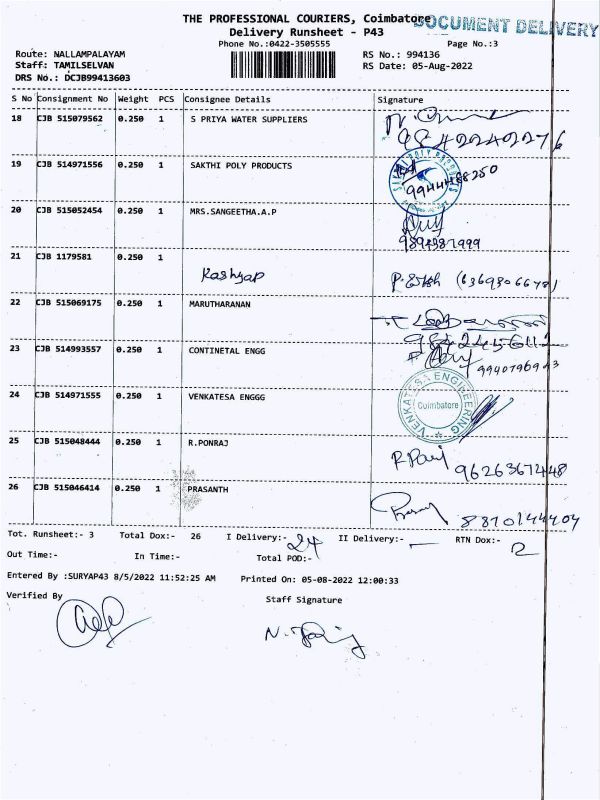 THE PROFESSIONAL COURIERS, Coimbatore
DOCUMENT DELIVERY
Delivery Runsheet - P43
Phone No.:0422-3505555
Page No.:3
Route: NALLAMPALAYAM
RS No.: 994136
Staff: TAMILSELVAN
RS Date: 05-Aug-2022
DRS No.: DCJB99413603
S No Consignment No Weight PCS Consignee Details Signature
18 CJB 515079562 0.250 1 S PRIYA WATER SUPPLIERS
9842240276
19 CJB 514971556 0.250 1 SAKTHI POLY PRODUCTS
SAKTHI POLY PRODUCTS
9944488250
20 CJB 515052454 0.250 1 MRS.SANGEETHA.A.P
21 CJB 1179581 0.250 1
Kashyap
22 CJB 515069175 0.250 1 MARUTHARANAN
23 CJB 514993557 0.250 1 CONTINETAL ENGG
24 CJB 514971555 0.250 1 VENKATESA ENGGG
VENKATESA ENGINEERING
Coimbatore
25 CJB 515048444 0.250 1 R.PONRAJ
9626367448
26 CJB 515046414 0.250 1 PRASANTH
8870144404
Tot. Runsheet:- 3 Total Dox:- 26 I Delivery:- 24 II Delivery:- — RTN Dox:- 2
Out Time:- In Time:- Total POD:-
Entered By :SURYAP43 8/5/2022 11:52:25 AM Printed On: 05-08-2022 12:00:33
Verified By
Staff Signature